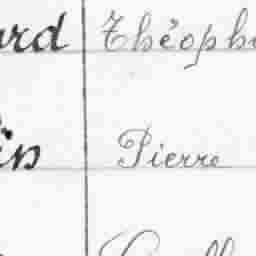 ard Théoph
in Pierre